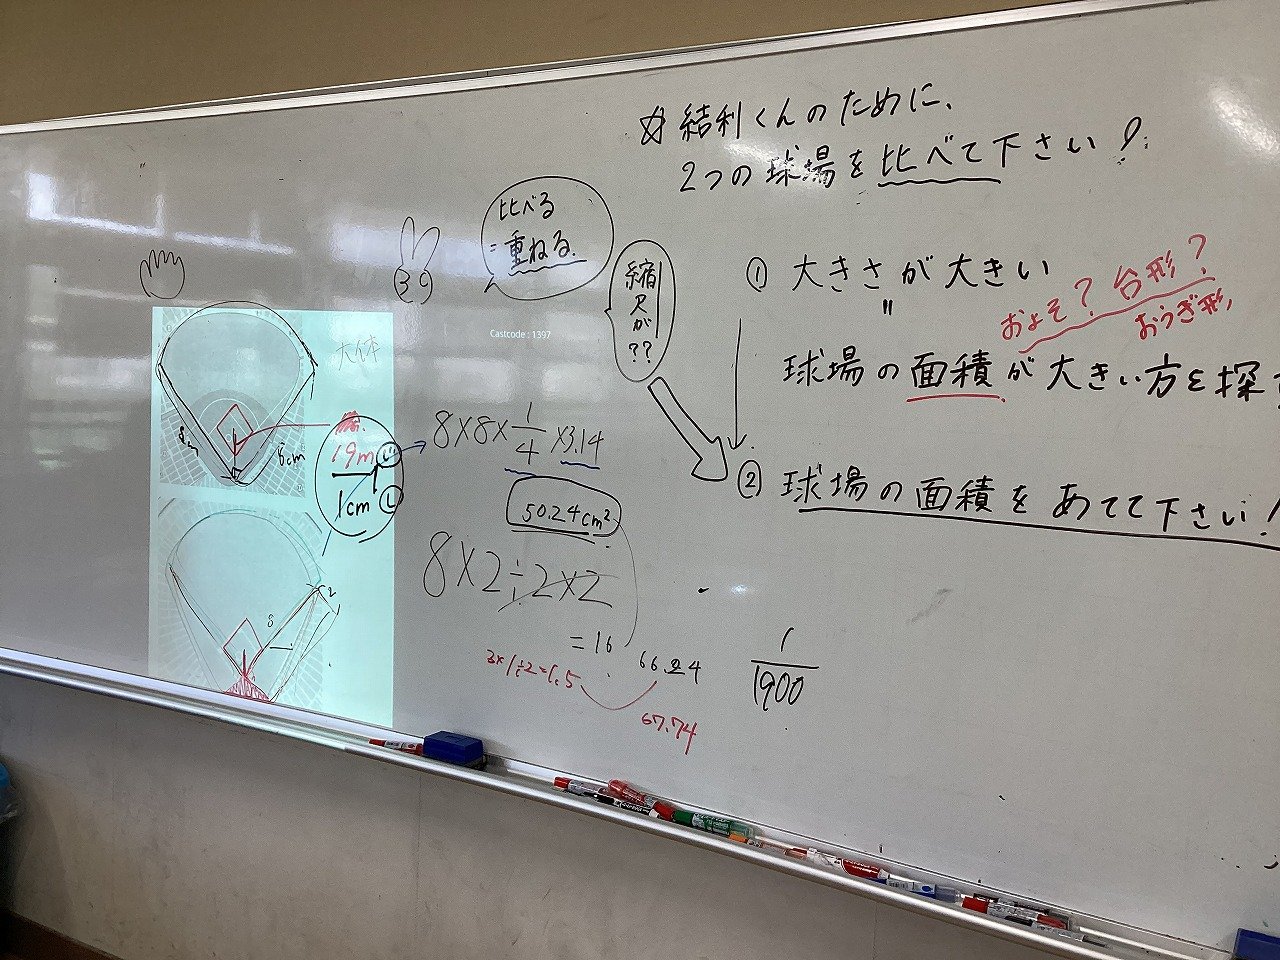 ☆結利くんのために、
2つの球場を比べて下さい!
比べる
=重ねる.
縮尺が??
① 大きさが大きい
〃
およそ? 台形?
おうぎ形
球場の面積が大きい方を探
② 球場の面積をあてて下さい!
Castcode : 1397
大体
8cm
19m
1cm
8×8×1/4×3.14
50.24cm²
8×2÷2×2
=16
66.24
3×1÷2=1.5
67.74
1/1900
8
2